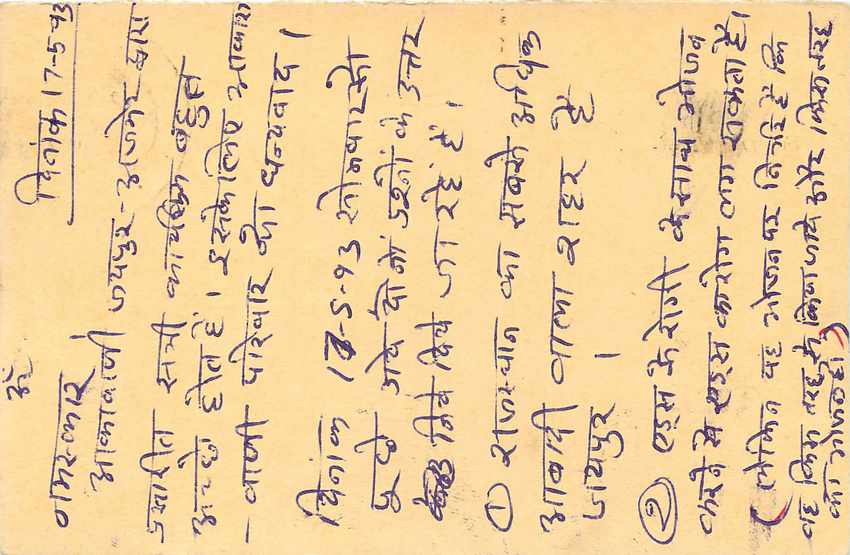 ॐ
दिनांक 17-5-93
नमस्कार
आकाशवाणी जयपुर-अजमेर द्वारा
प्रसारित सभी कार्यक्रम बहुत
अच्छे होते है। इसके लिए आकाश
-वाणी परिवार को धन्यवाद।
दिनांक 17-5-93 सोमवार को
पूछे गये दोनों प्रश्नों के उत्तर
निचे दिये जा रहे हैं।
① राजस्थान का सबसे अधिक
आबादी वाला शहर है
जयपुर।
② एड्स के रोगी के साथ भोजन
करने से एड्स का रोग लग सकता है।
(लेकिन यह भोजन पर निर्भर है कि
वह किस तरह से किया जाये और किस तरह
का भोजन है।)